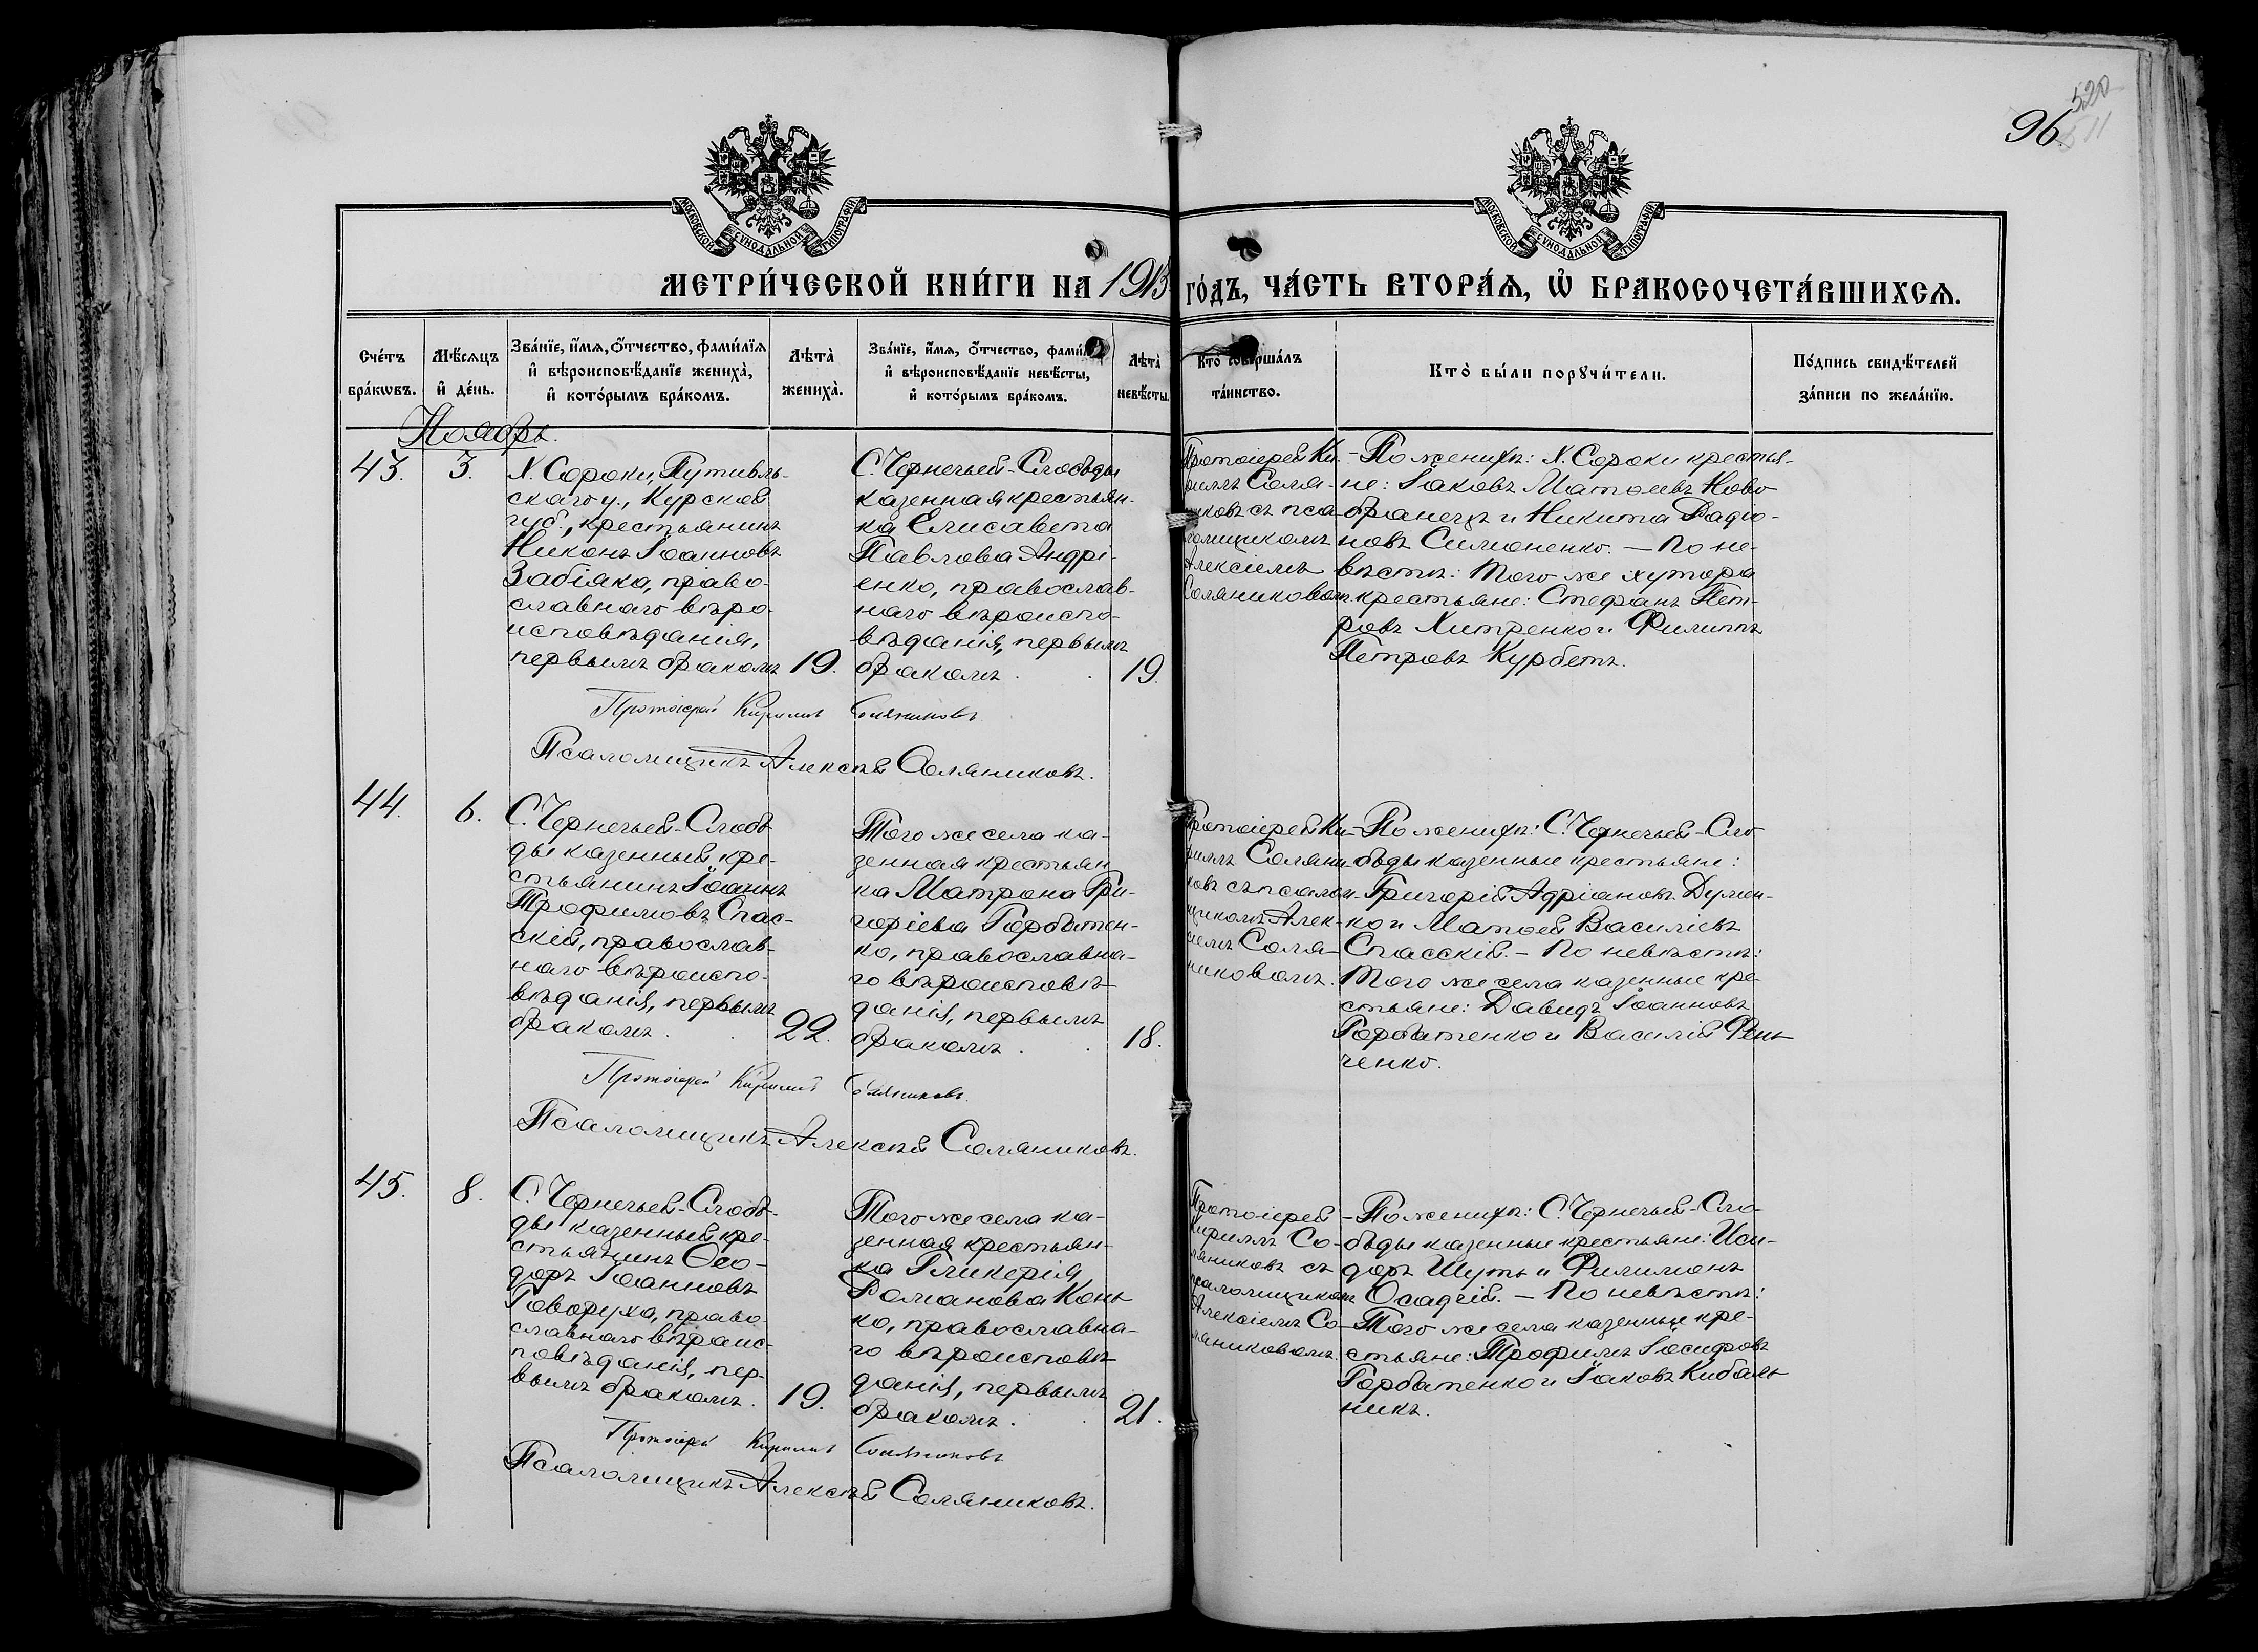 96
520
511
МОСКОВСКОЙ СѴНОДАЛЬНОЙ ТИПОГРАФІИ
МОСКОВСКОЙ СѴНОДАЛЬНОЙ ТИПОГРАФІИ
МЕТРИ́ЧЕСКОЙ КНИ́ГИ НА 1913 ГО́ДЪ, ЧА́СТЬ ВТОРА́Ѧ, Ѡ҆ БРАКОСОЧЕТА́ВШИХСѦ.
Сче́тъ бра́кѡвъ.
Мѣ́сѧцъ и҆ де́нь.
Зва́нїе, и҆́мѧ, ѻ҆́тчество, фами́лїѧ
и҆ вѣроисповѣ́данїе жениха̀,
и҆ кото́рымъ бра́комъ.
Лѣта̀ жениха̀.
Зва́нїе, и҆́мѧ, ѻ҆́тчество, фами́л
и҆ вѣроисповѣ́данїе невѣ́сты,
и҆ кото́рымъ бра́комъ.
Лѣта̀ невѣ́сты.
Кто̀ соверша́лъ
та́инство.
Кто̀ бы́ли порꙋчи́тели.
По́дпись свидѣ́телей
за́писи по жела́нїю.
Ноябрь.
43.
3.
Х. Сороки, Путивль-
скаго у., Курской
губ., крестьянинъ
Никонъ Іоанновъ
Забіяка, право-
славнаго вѣро-
исповѣданія,
первымъ бракомъ
19.
С. Чернечьей-Слободы
казенная крестьян-
ка Елисавета
Павлова Андрі-
енко, православ-
наго вѣроиспо-
вѣданія, первымъ
бракомъ.
19.
Протоіерей Ки-
риллъ Соля-
никовъ съ пса-
ломщикомъ
Алексіемъ
Соляниковымъ
-По женихѣ: Х. Сороки крестья-
не: Іаковъ Матѳеевъ Ново-
бранецъ и Никита Радіо-
новъ Симоненко. - По не-
вѣстѣ: Того же хутора
крестьяне: Стефанъ Пет-
ровъ Хитренко и Филиппъ
Петровъ Курбетъ.
Протоіерей Кириллъ Соляниковъ
Псаломщикъ Алексѣй Соляниковъ.
44.
6.
С. Чернечьей-Слобо-
ды казенный кре-
стьянинъ Іоаннъ
Трофимовъ Спас-
скій, православ-
наго вѣроиспо-
вѣданія, первымъ
бракомъ.
22.
Того же села ка-
зенная крестьян
ка Матрона Гри-
горіева Горбатен-
ко, православна-
го вѣроисповѣ-
данія, первымъ
бракомъ.
18.
Протоіерей Ки-
риллъ Соляни-
ковъ съ псалом-
щикомъ Алек-
сіемъ Соля-
никовымъ.
-По женихѣ: С. Чернечьей-Сло-
боды казенные крестьяне:
Григорій Адріановъ Думен-
ко и Матѳей Василіевъ
Спасскій. - По невѣстѣ:
Того же села казенные кре-
стьяне: Давидъ Іоанновъ
Горбатенко и Василій Фень-
ченко.
Протоіерей Кириллъ Соляниковъ.
Псаломщикъ Алексѣй Соляниковъ.
45.
8.
С. Чернечьей-Слобо-
ды казенный кре-
стьянинъ Ѳео-
доръ Іоанновъ
Говоруха, право-
славнаго вѣроис-
повѣданія, пер-
вымъ бракомъ.
19.
Того же села ка-
зенная крестьян-
ка Гликерія
Романова Конь-
ко, православна-
го вѣроисповѣ-
данія, первымъ
бракомъ.
21.
Протоіерей
Кириллъ Со-
ляниковъ съ
псаломщикомъ
Алексіемъ Со-
ляниковымъ.
-По женихѣ: С. Чернечьей-Сло-
боды казенные крестьяне: Иси-
доръ Шутъ и Филимонъ
Осадчій. - По невѣстѣ:
Того же села казенные кре-
стьяне: Трофимъ Іосифовъ
Горбатенко и Іаковъ Кибаль-
никъ.
Протоіерей Кириллъ Соляниковъ
Псаломщикъ Алексѣй Соляниковъ.